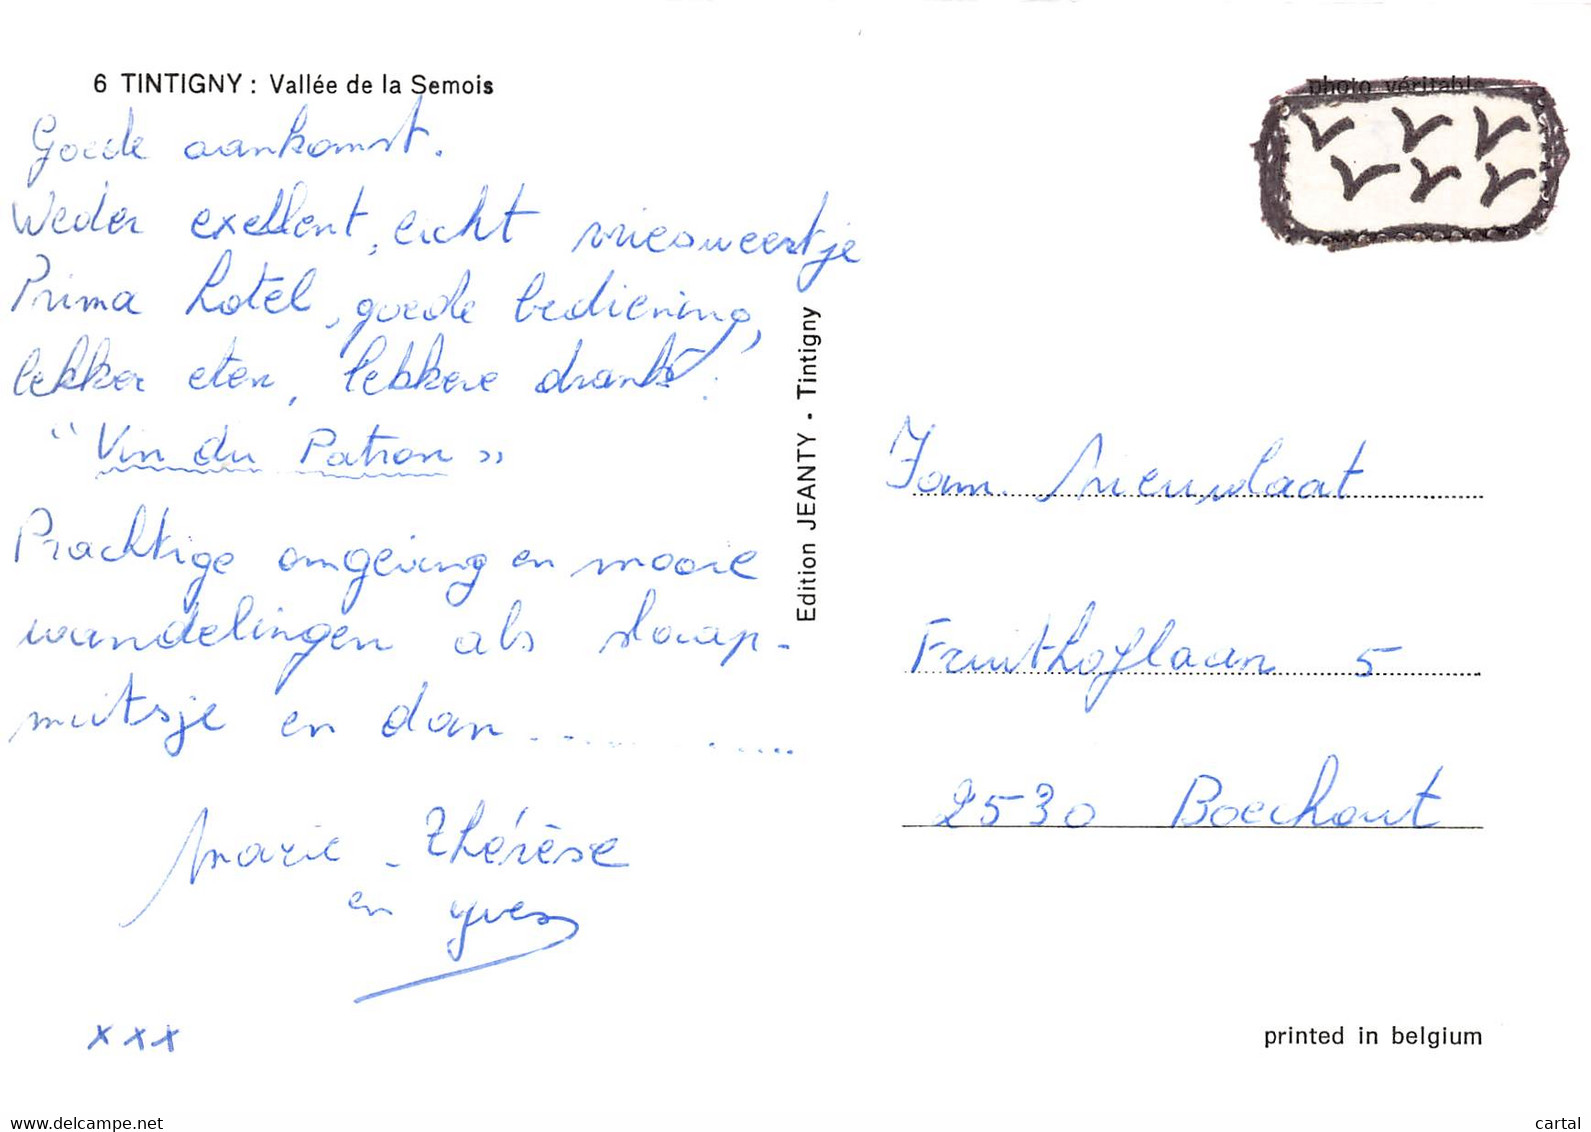 6 TINTIGNY : Vallée de la Semois
photo véritable
Goede aankomst.
Weder exellent, echt vriesweertje
Prima hotel, goede bediening,
lekker eten, lekkere drank!
"Vin du Patron"
Prachtige omgeving en mooie
wandelingen als slaap-
mutsje en dan ............
Marie-Thérèse
en Yves
xxx
Edition JEANTY - Tintigny
Fam. Nieuwlaat
Fruithoflaan 5
2530 Boechout
printed in belgium
delcampe.net
cartal